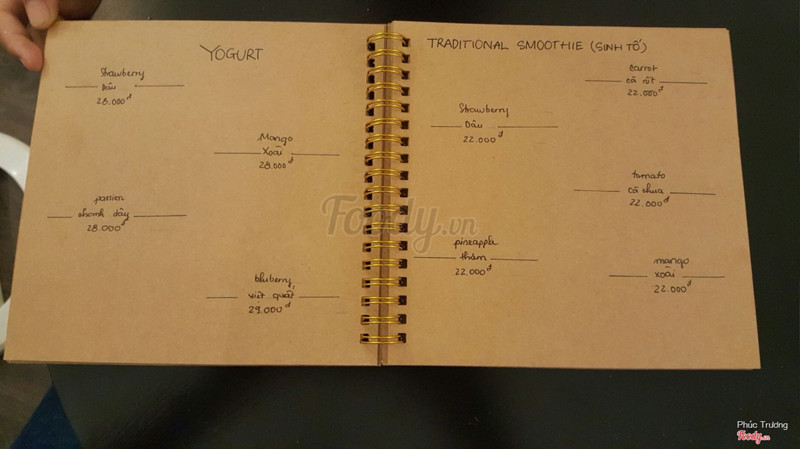 YOGURT
Strawberry
Dâu
28.000đ
Mango
Xoài
28.000đ
passion
chanh dây
28.000đ
bluberry
việt quất
29.000đ
TRADITIONAL SMOOTHIE (SINH TỐ)
carrot
cà rốt
22.000đ
Strawberry
Dâu
22.000đ
tomato
cà chua
22.000đ
pineapple
thơm
22.000đ
mango
xoài
22.000đ
Foody.vn
Phúc Trương
Foody.vn